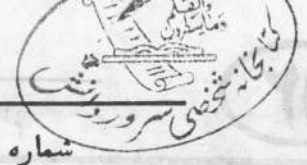 والقلم
وما یسطرون
کتابخانه شخصی سرور دانش
شماره